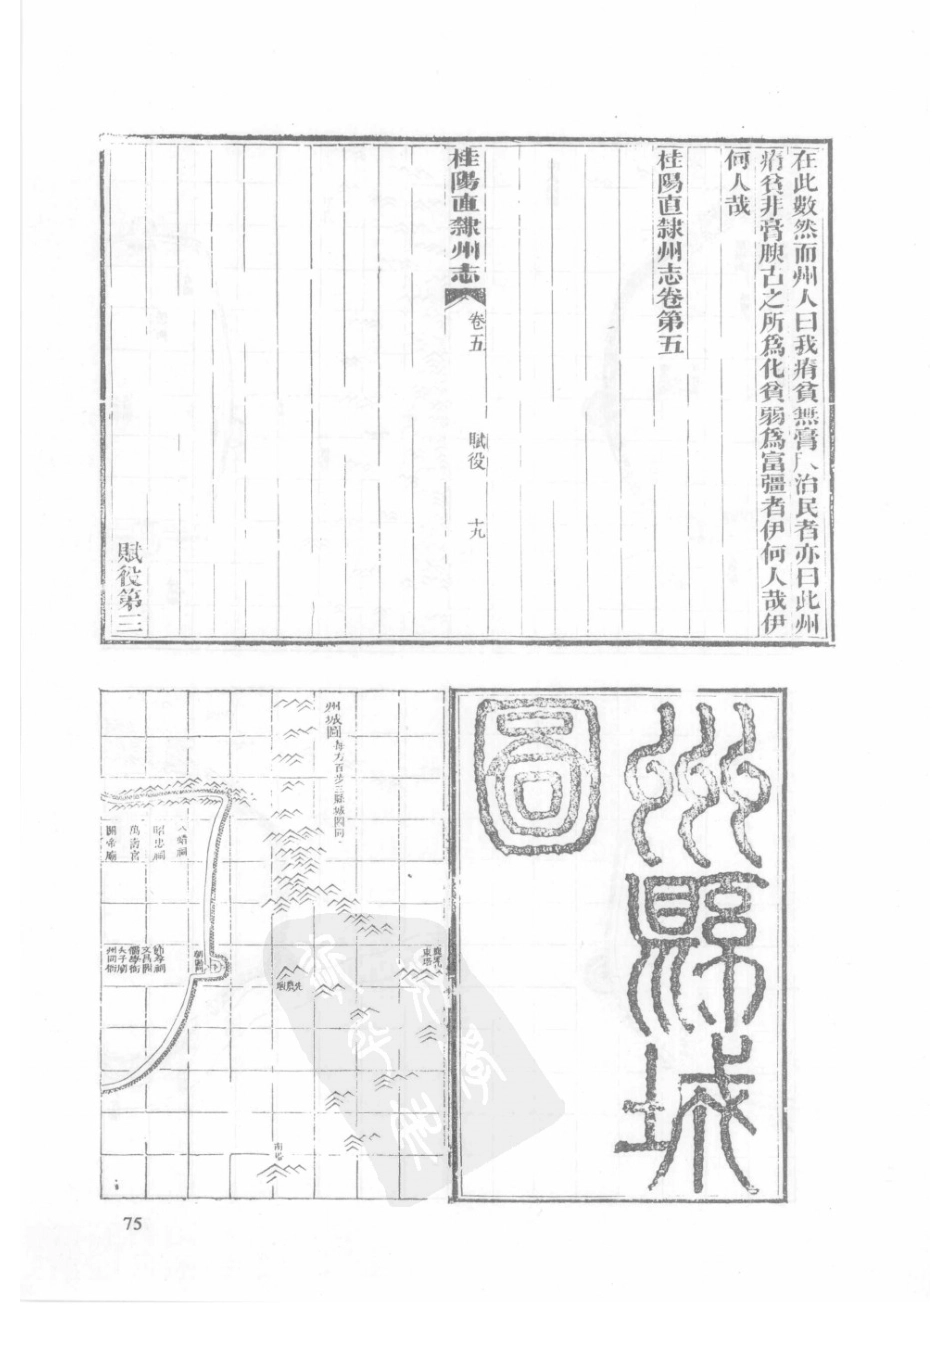 在此數然而州人曰我瘠貧無膏 治民者亦曰此州
瘠貧非膏腴古之所爲化貧弱爲富彊者伊何人哉伊
何人哉
桂陽直隸州志卷第五
桂陽直隸州志
卷五
賦役
十九
賦役第三
州縣城
圖
州城圖每方百步三縣城圖同
東塔
先農壇
南塔
八蜡祠
昭忠祠
萬壽宮
關帝廟
節孝祠
文昌閣
儒學衙
夫子廟
州同衙
75